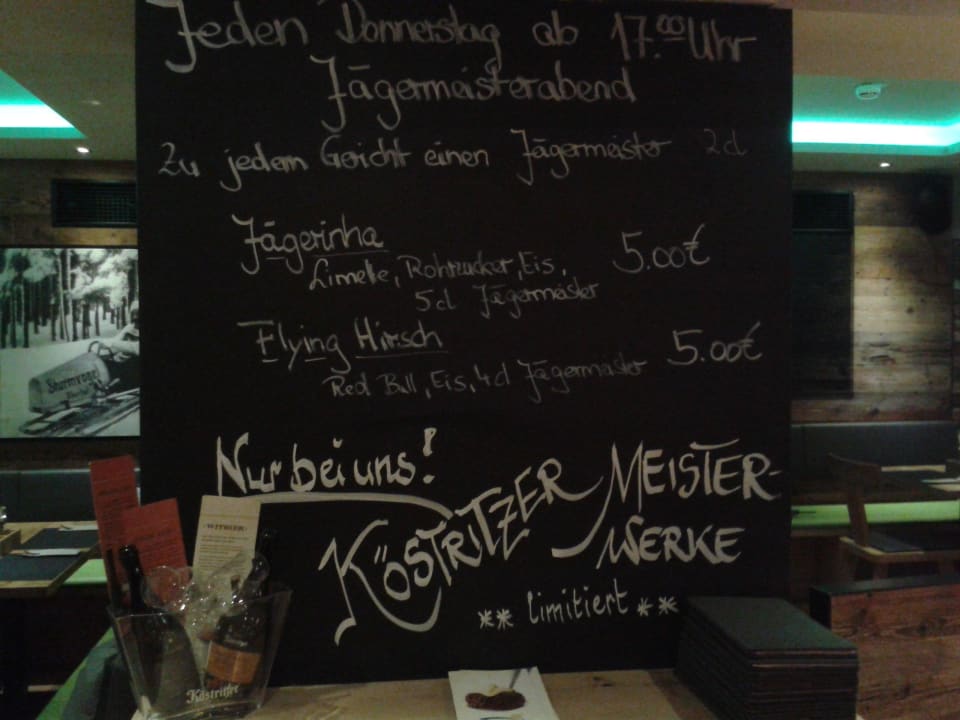 Jeden Donnerstag ab 17.00 Uhr
Jägermeisterabend
Zu jedem Gericht einen Jägermeister 2cl
Jägerinha
Limette, Rohrzucker, Eis, 5.00€
5cl Jägermeister
Flying Hirsch
Red Bull, Eis, 4cl Jägermeister 5.00€
Nur bei uns!
KÖSTRITZER MEISTER-
WERKE
** limitiert **
Sturmvogel
Köstritzer